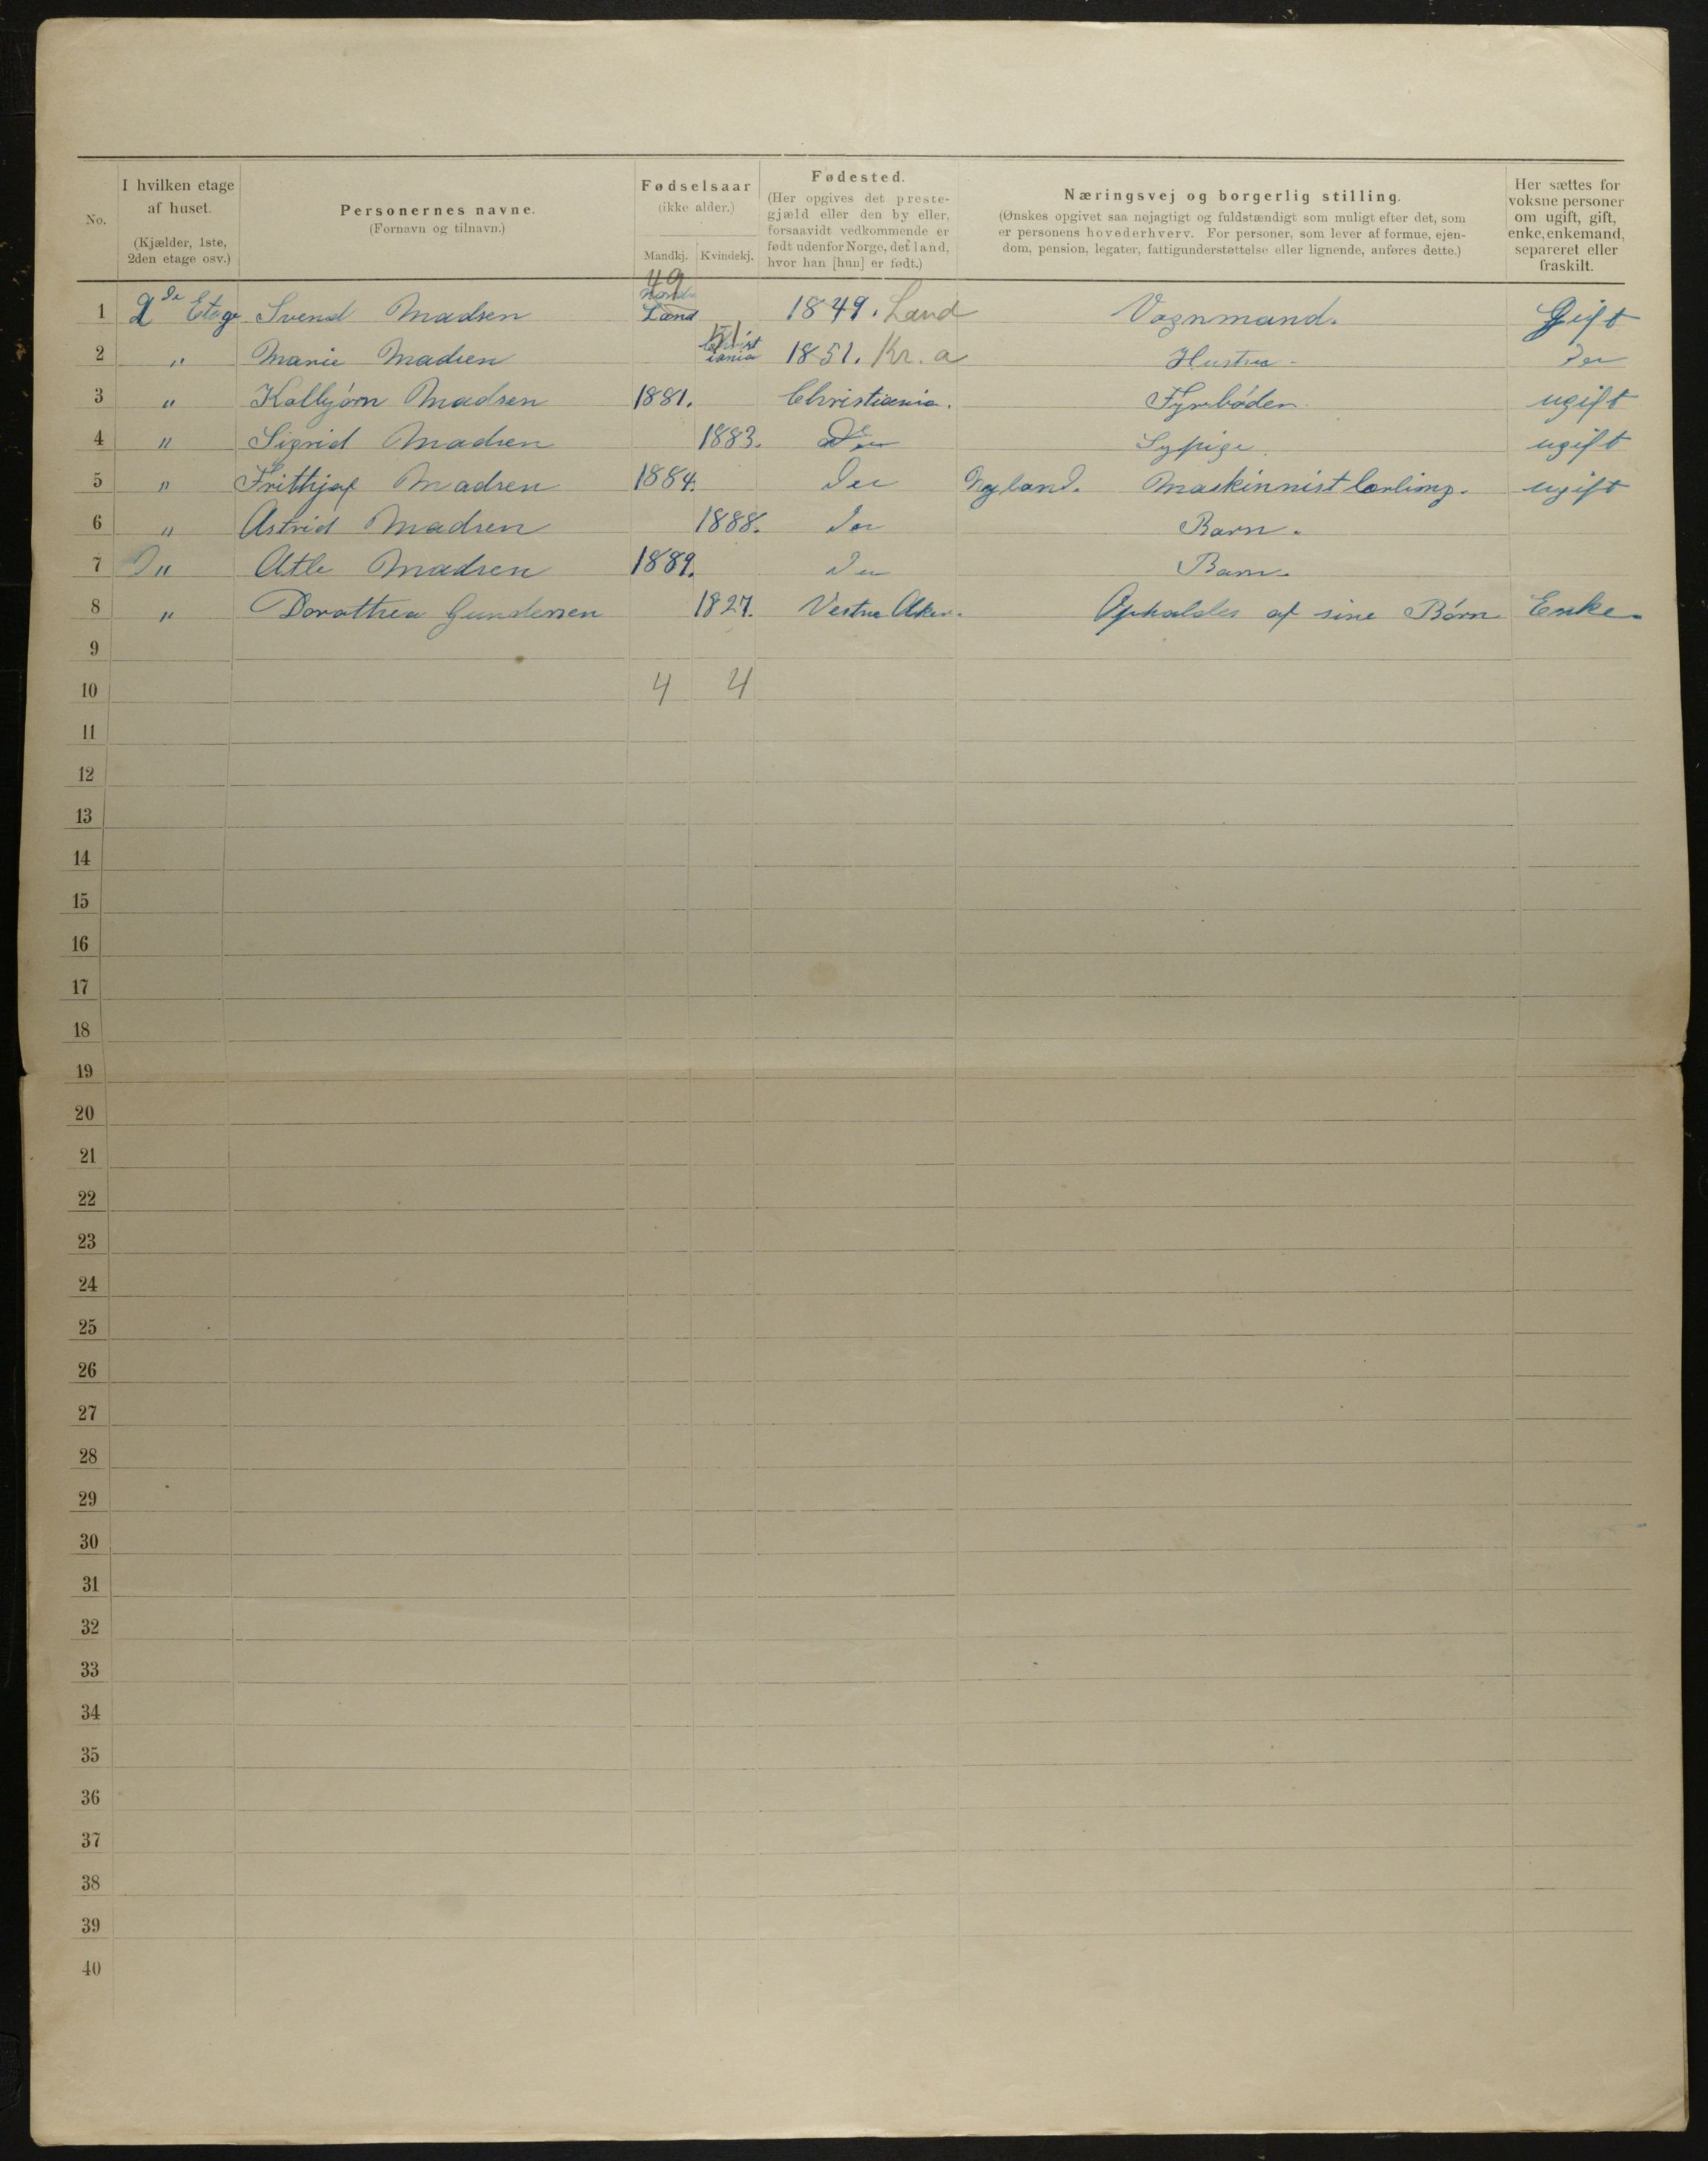 No. I hvilken etage af huset. (Kjælder, 1ste, 2den etage osv.) Personernes navne. (Fornavn og tilnavn.) Fødselsaar (ikke alder.) Mandkj. Kvindekj. Fødested. (Her opgives det prestegjæld eller den by eller, forsaavidt vedkommende er født udenfor Norge, det land, hvor han [hun] er født.) Næringsvej og borgerlig stilling. (Ønskes opgivet saa nøjagtigt og fuldstændigt som muligt efter det, som er personens hovederhverv. For personer, som lever af formue, ejendom, pension, legater, fattigunderstøttelse eller lignende, anføres dette.) Her sættes for voksne personer om ugift, gift, enke, enkemand, separeret eller fraskilt.
1 2de Etage Svend Madsen 49 Land 1849. Land Vognmand. Gift
2 " Marie Madsen 51 1851. Kr.a Hustru
3 " Kolbjørn Madsen 1881. Christiania. Fyrbøder ugift
4 " Sigrid Madsen 1883. Sypige. ugift
5 " Frithjof Madsen 1884. Nyland. Maskinnist lærling. ugift
6 " Astrid Madsen 1888. Barn.
7 " Atle Madsen 1889. Barn.
8 " Dorothea Gundersen 1827. Vestre Aker. Opholdes af sine Børn Enke.
9
10 4 4
11
12
13
14
15
16
17
18
19
20
21
22
23
24
25
26
27
28
29
30
31
32
33
34
35
36
37
38
39
40